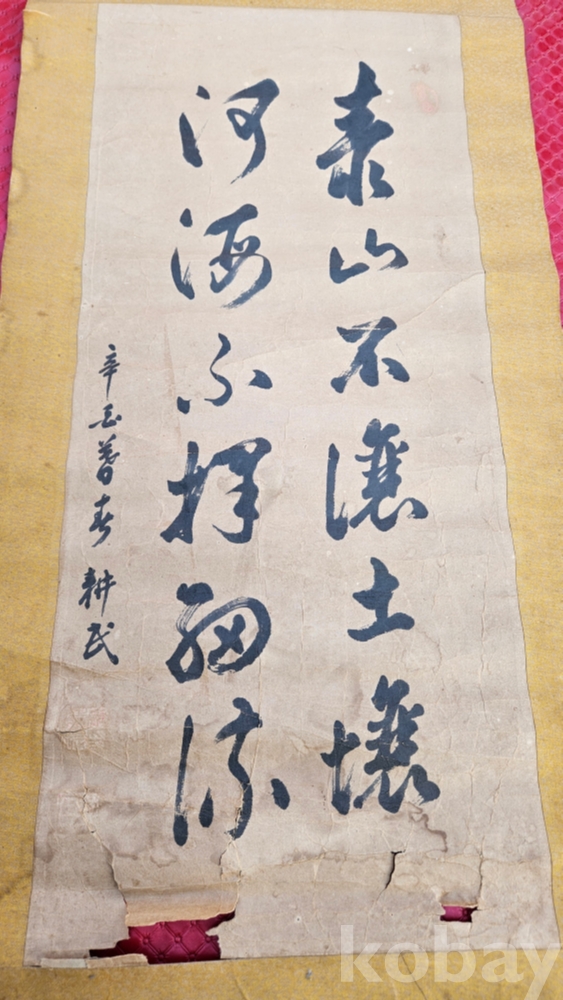 泰山不讓土壤
河海不擇細流
辛酉暮春 耕民
kobay